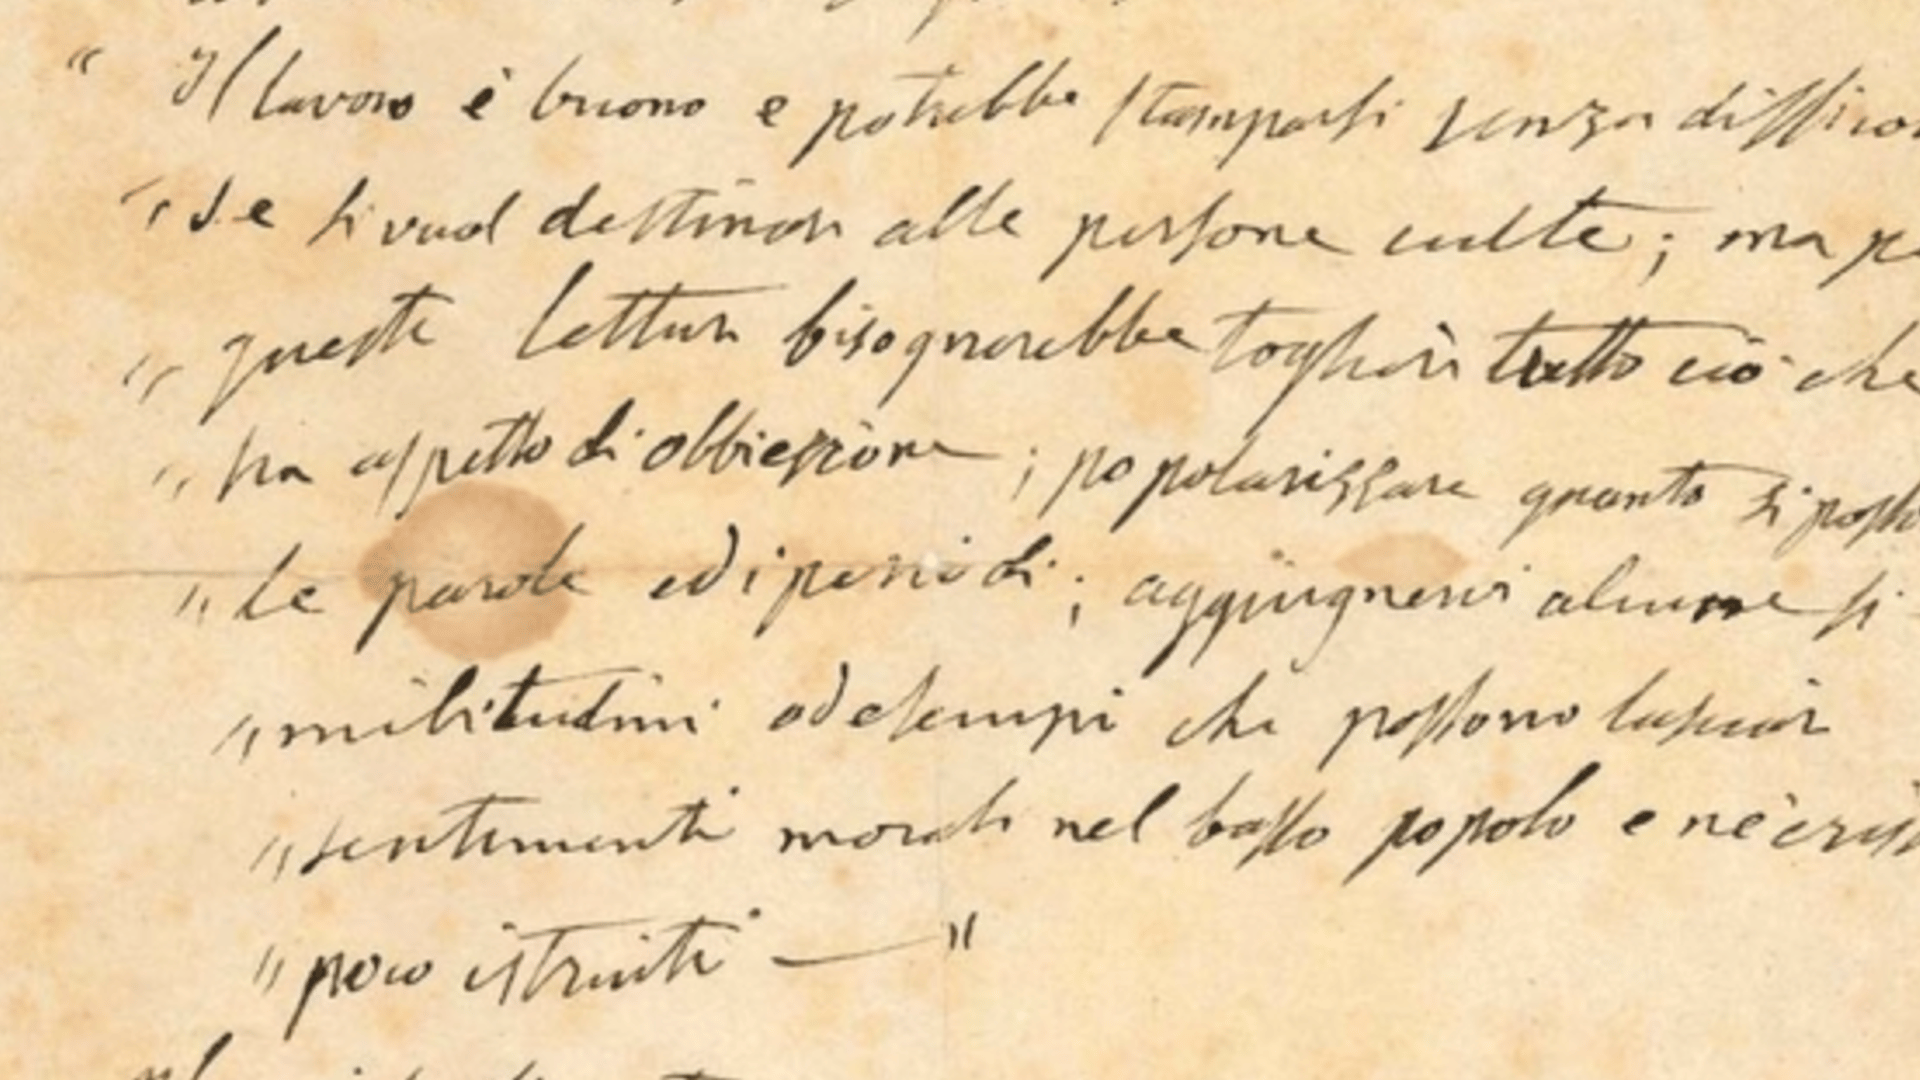 “ Il lavoro è buono e potrebbe stamparsi senza diffico
„ Se si vuol destinare alle persone culte; ma pe
„ queste letture bisognerebbe togliere tutto ciò che
„ ha aspetto di obbiezione; popolarizzare quanto si possa
„ le parole ed i periodi; aggiugnervi alcune si
„ militudini ed esempi che possono lasciar
„ sentimenti morali nel basso popolo e ne'
„ poco istruiti — "